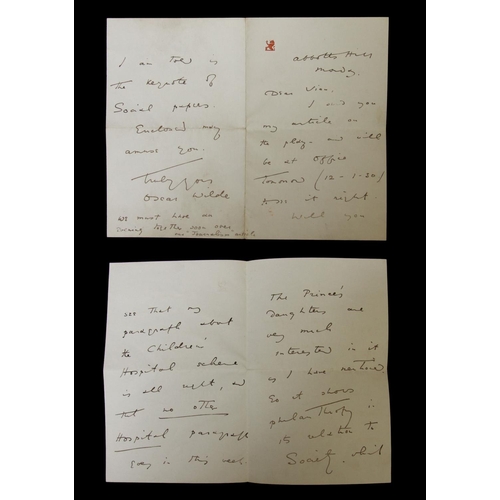 Abbotts Hill
Monday.
Dear Vian.
I send you
my article on
the play. and will
be at office
Tomorrow (12-1.30)
it right
Will you
see that my
paragraph about
the Children's
Hospital scheme
is all right, and
that no other
Hospital paragraph
goes in this week.
The Prince's
Daughters are
very much
interested in it
as I have
So it shows
philanthropy in
its relation to
Society, which
I am told is
the keynote of
Social papers.
Enclosed may
amuse you.
Truly yours
Oscar Wilde
We must have an
evening together soon over
our "Journalism" article.